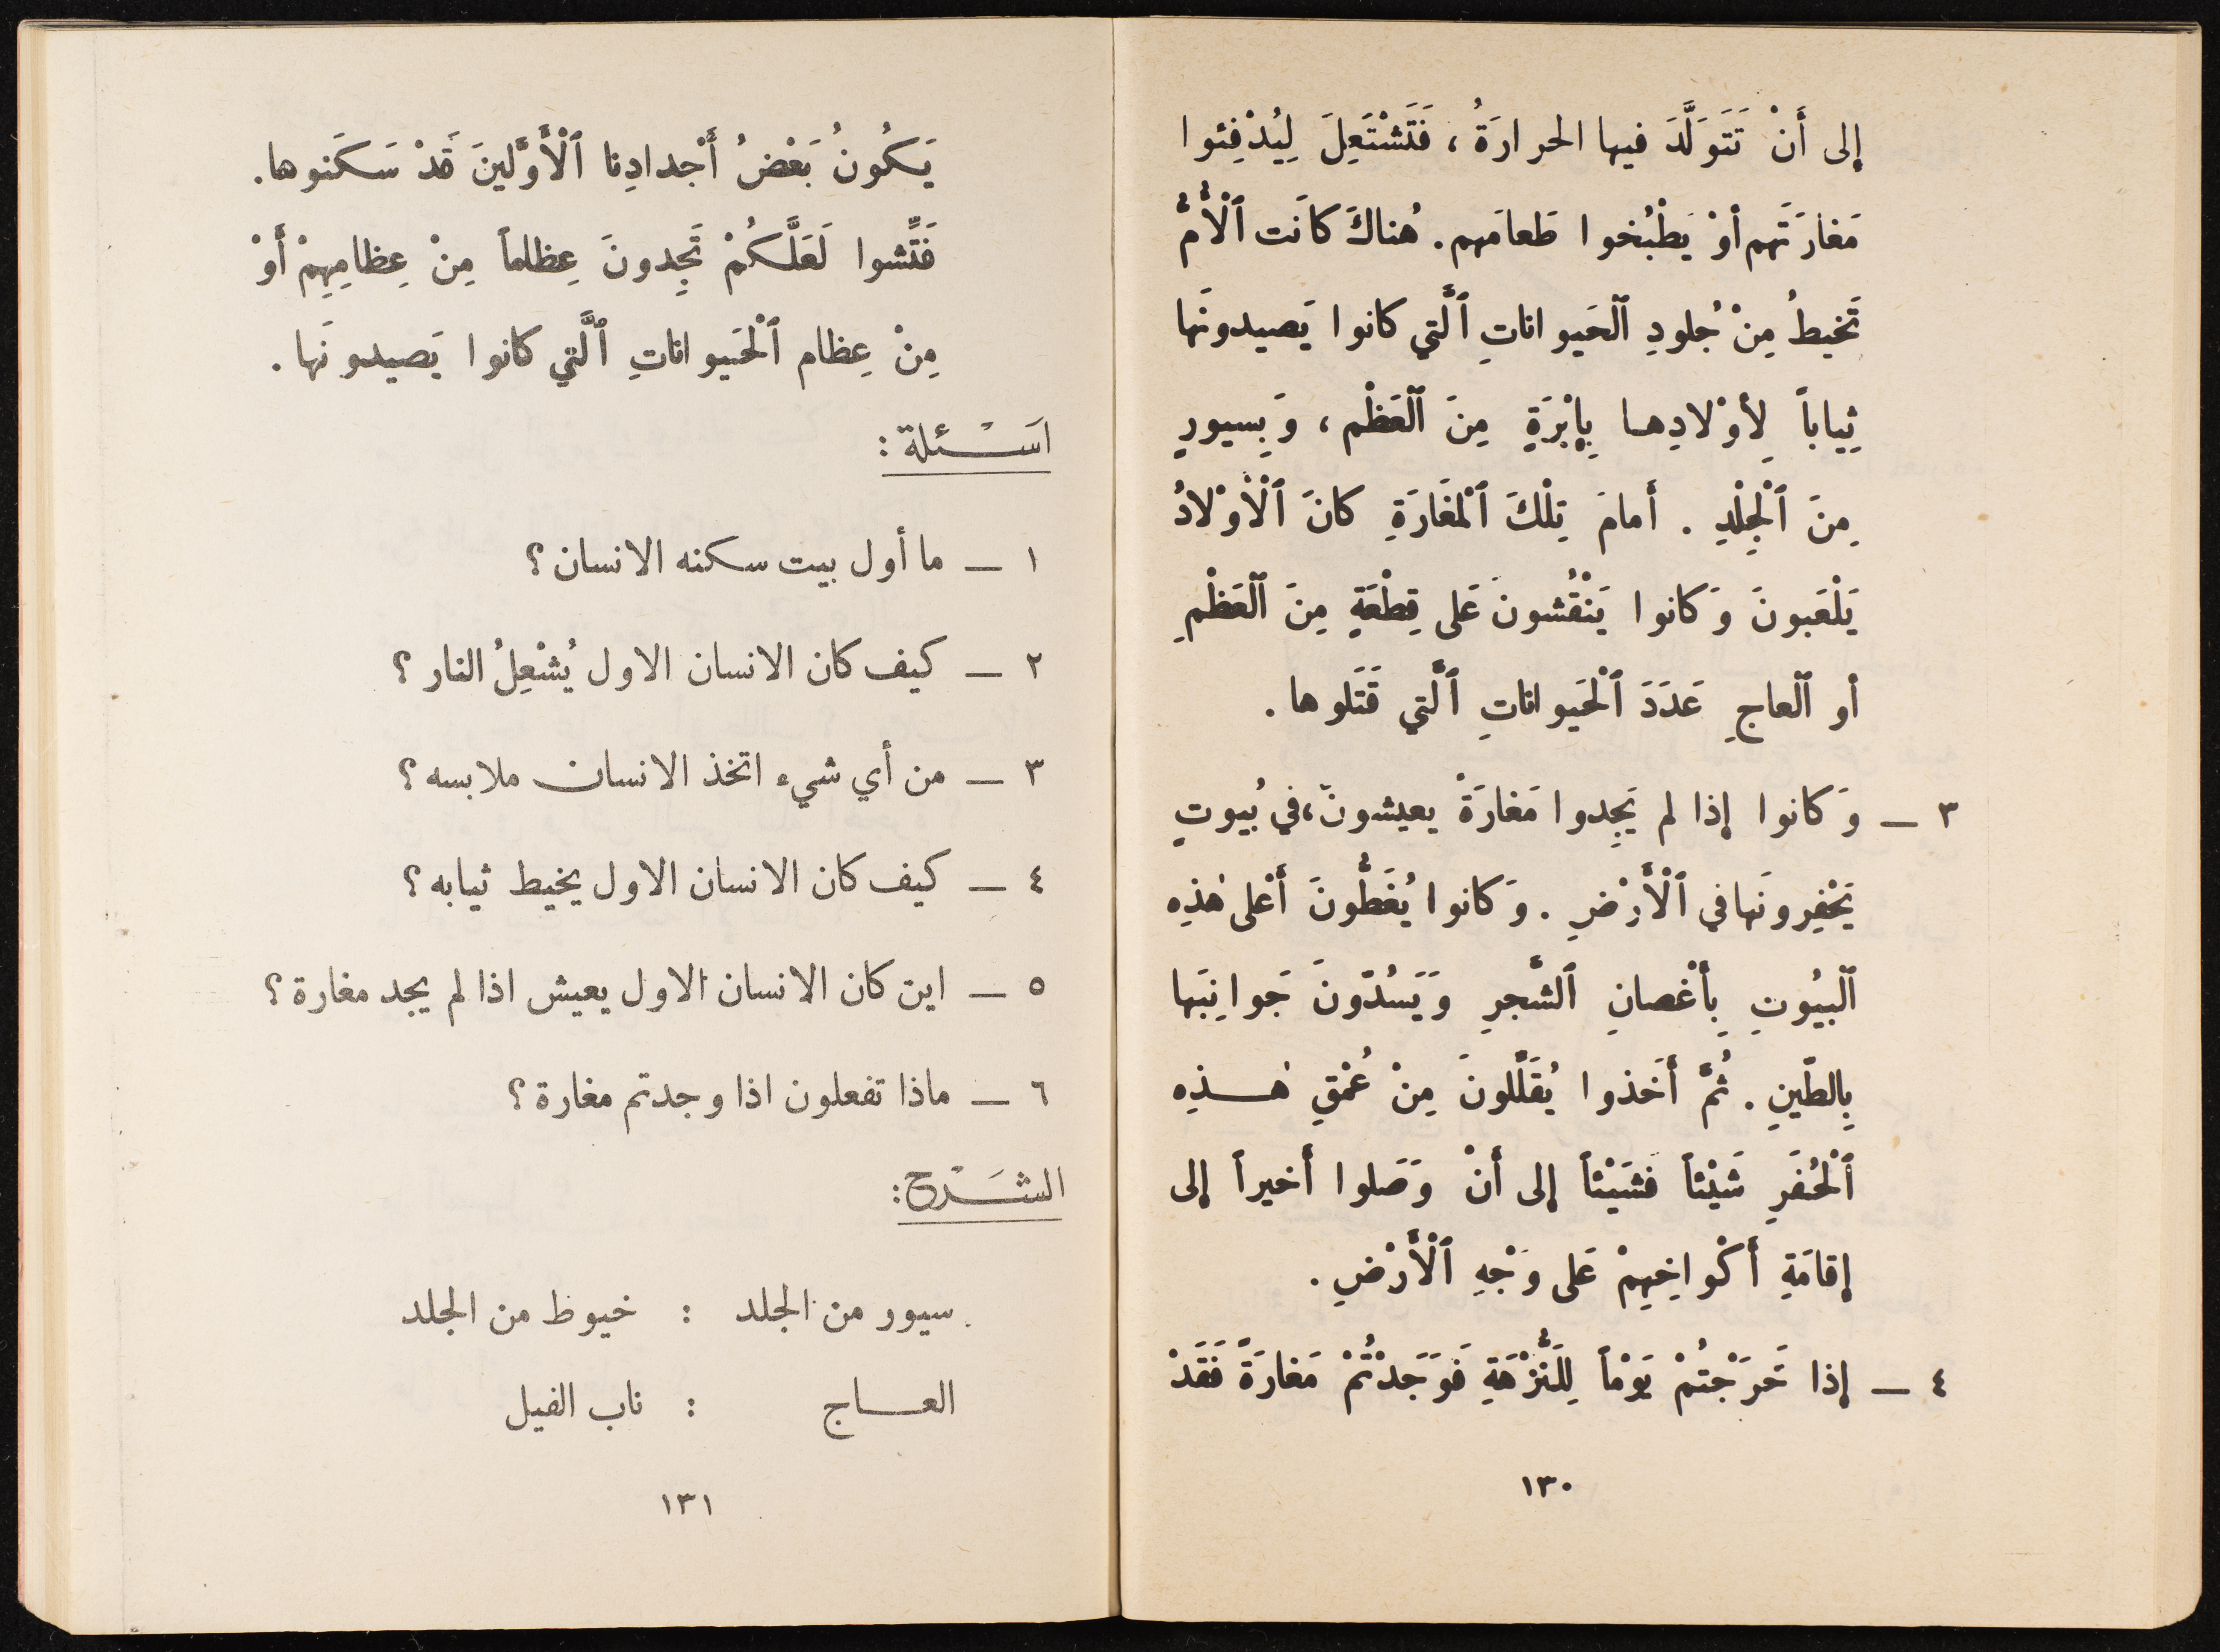 إلى أَنْ تَتَوَلَّدَ فيها الحرارَةُ ، فَتَشْتَعِلَ لِيُدْفِئوا
مَغارَتَهم أوْ يَطْبُخوا طَعامَهم . هُناكَ كانَت ٱلْأُمُّ
تَخيطُ مِنْ جُلودِ ٱلْحَيواناتِ ٱلَّتي كانوا يَصيدونَها
ثِياباً لِأوْلادِهـا بِإبْرَةٍ مِنَ ٱلْعَظْمِ ، وَبِسيورٍ
مِنَ ٱلْجِلْدِ . أَمامَ تِلْكَ ٱلْمَغَارَةِ كانَ ٱلْأَوْلادُ
يَلْعَبونَ وَكانوا يَنْقُشونَ عَلى قِطْعَةٍ مِنَ ٱلْعَظْمِ
أو ٱلْعاجِ عَدَدَ ٱلْحَيواناتِ ٱلَّتي قَتَلوها .
٣ — وَكانوا إذا لم يَجِدوا مَغارَةً يعيشونَ، في بُيوتٍ
يَحْفِرونَها في ٱلْأَرْضِ . وَكانوا يُغَطُّونَ أَعْلى هٰذِه
ٱلْبيُوتِ بِأَغْصانِ ٱلشَّجرِ وَيَسُدّونَ جَوانِبَها
بِالطّينِ . ثُمَّ أَخَذوا يُقَلِّلونَ مِنْ عُمْقِ هٰـــذِه
ٱلْحُفَرِ شَيْئاً فَشَيْئاً إلى أَنْ وَصَلوا أَخيراً إلى
إقامَةِ أَكْواخِهِمْ عَلى وَجْهِ ٱلْأَرْضِ .
٤ — إذا خَرَجْتُمْ يَوْماً لِلنُّزْهَةِ فَوَجَدْتُمْ مَغارَةً فَقَدْ
١٣٠
يَكُونُ بَعْضُ أَجْدادِنا ٱلْأَوَّلينَ قَدْ سَكَنوها.
فَتِّشوا لَعَلَّكُمْ تَجِدونَ عِظاماً مِنْ عِظامِهِمْ أَوْ
مِنْ عِظام ٱلْحَيواناتِ ٱلَّتي كانوا يَصيدونَها .
اسَـــْـئلة :
١ — ما أول بيت سكنه الانسان ؟
٢ — كيف كان الانسان الاول يُشْعِلُ النار ؟
٣ — من أي شيء اتخذ الانسان ملابسه ؟
٤ — كيف كان الانسان الاول يخيط ثيابه ؟
٥ — اين كان الانسان الاول يعيش اذا لم يجد مغارة ؟
٦ — ماذا تفعلون اذا وجدتم مغارة ؟
الشَـــْـرح :
سيور من الجلد : خيوط من الجلد
العـــاج : ناب الفيل
١٣١